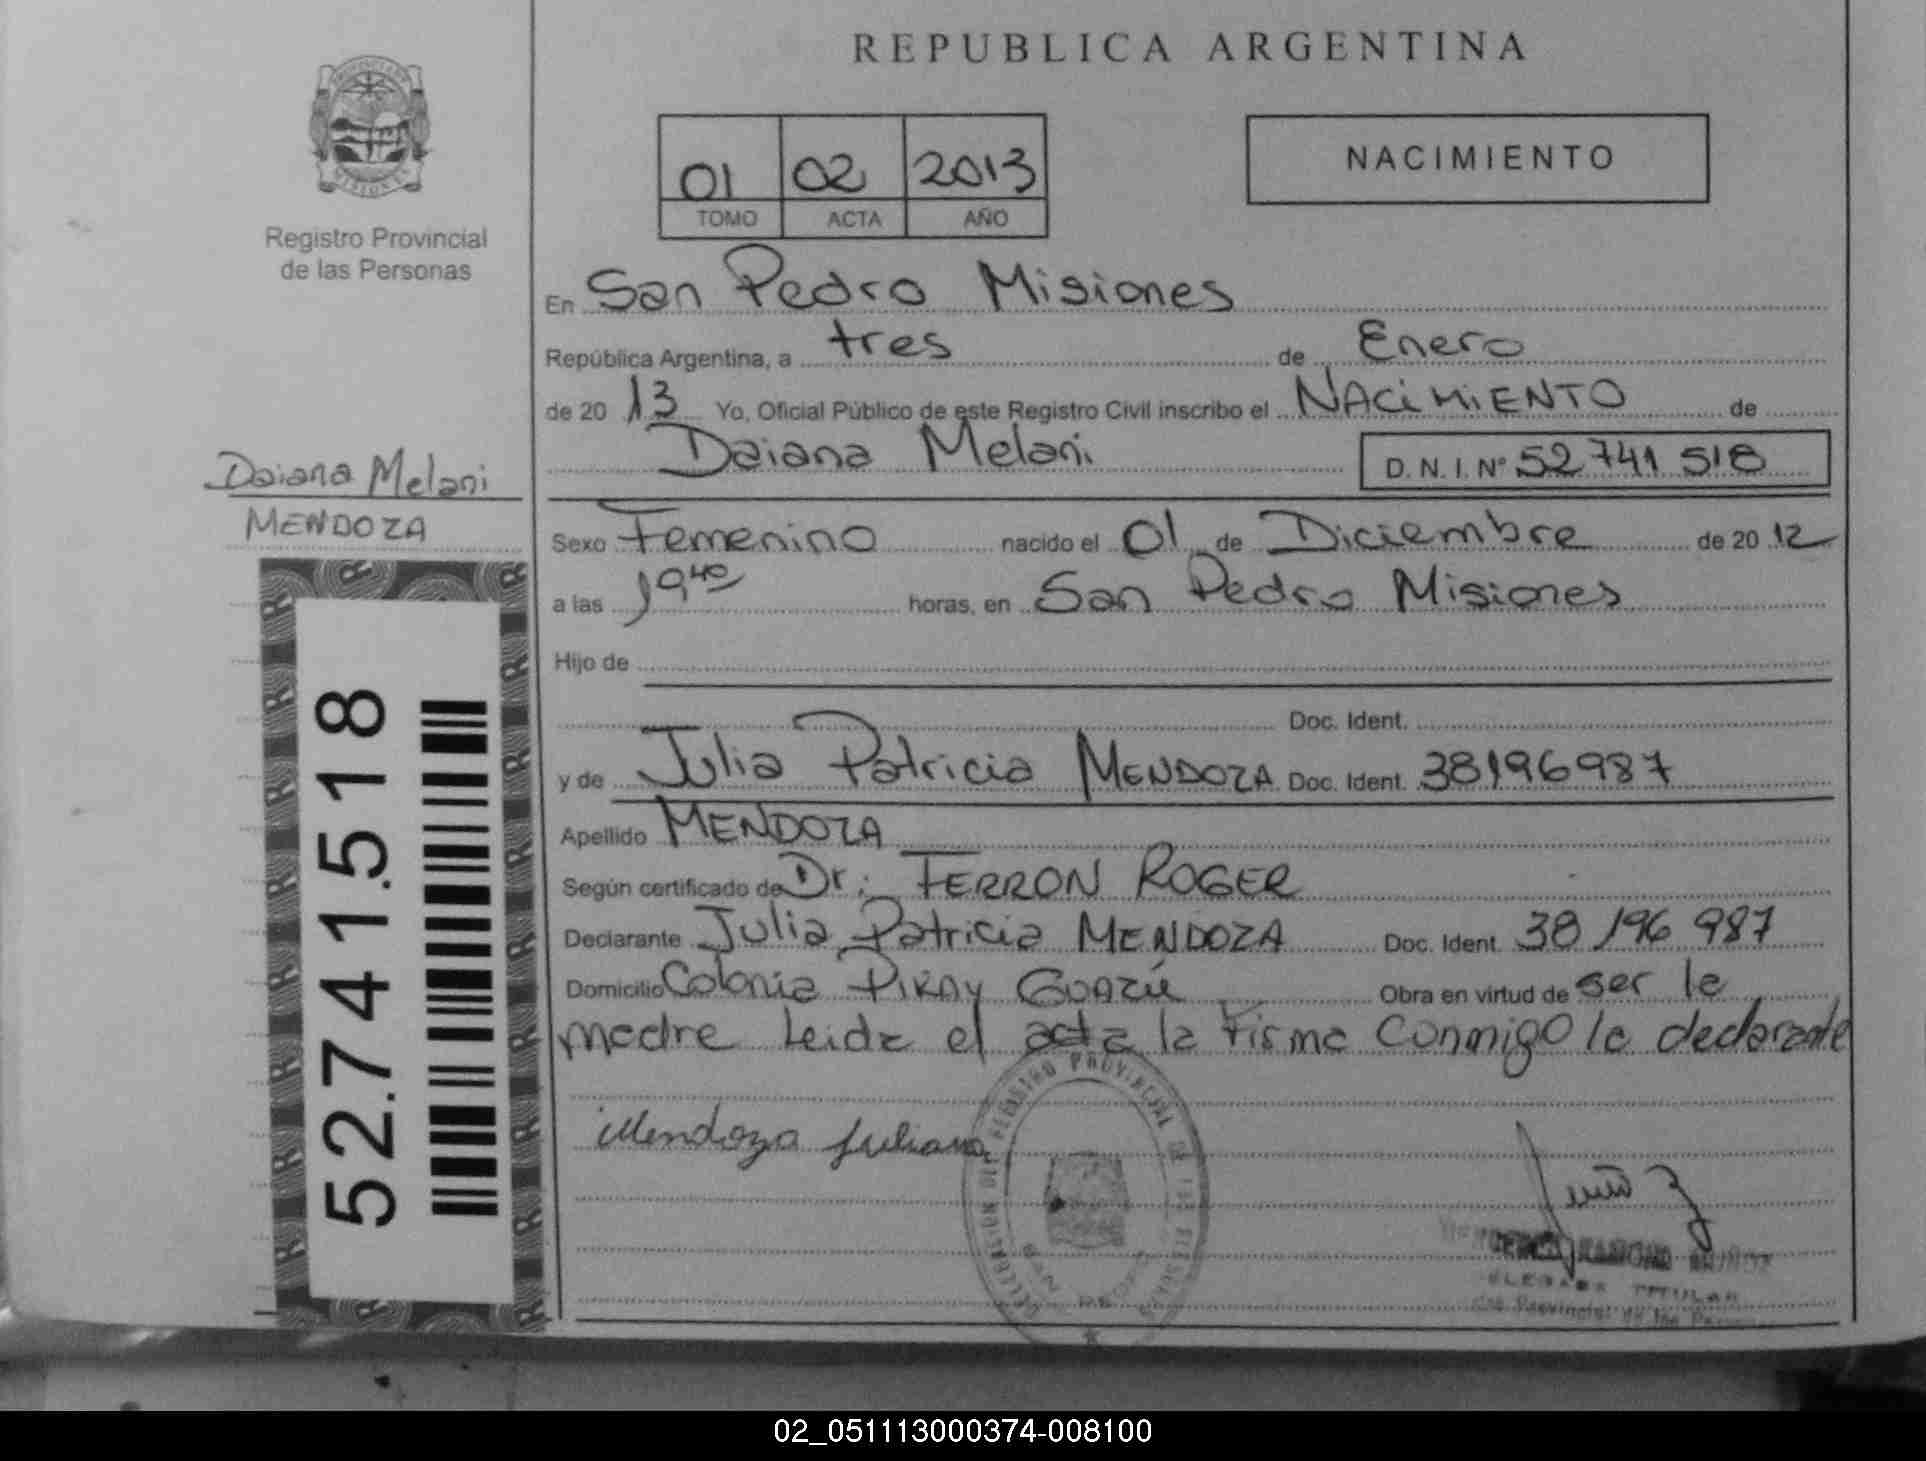 REPUBLICA ARGENTINA
PROVINCIA DE MISIONES
Registro Provincial
de las Personas
01 02 2013
TOMO ACTA AÑO
NACIMIENTO
En San Pedro Misiones
República Argentina, a tres de Enero
de 20 13 Yo, Oficial Público de este Registro Civil inscribo el NACIMIENTO de
Daiana Melani D. N. I. Nº 52 741 518
Daiana Melani
MENDOZA
Sexo Femenino nacido el 01 de Diciembre de 20 12
a las 19 40 horas, en San Pedro Misiones
Hijo de
Doc. Ident.
y de Julia Patricia MENDOZA Doc. Ident. 38196987
Apellido MENDOZA
Según certificado de Dr: FERRON ROGER
Declarante Julia Patricia MENDOZA Doc. Ident. 38 196 987
Domicilio Colonia PIRAY GUAZÚ Obra en virtud de ser la
madre Leida el acta la firma conmigo la declarante
52.741.518
Mendoza Juliana
REGISTRO PROVINCIAL DE LAS PERSONAS
SAN PEDRO
RAMONA MUÑOZ
DELEGADA TITULAR
Provincial de las Personas
02_051113000374-008100